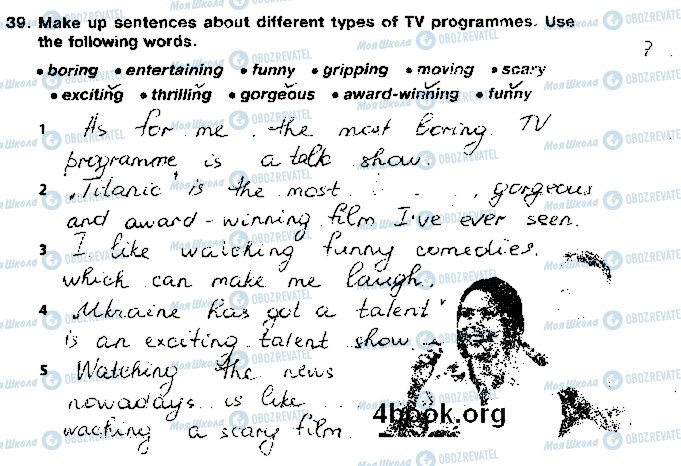 39. Make up sentences about different types of TV programmes. Use
the following words.
?
• boring • entertaining • funny • gripping • moving • scary
• exciting • thrilling • gorgeous • award-winning • funny
1 As for me, the most boring TV
programme is a talk show.
2 „Titanic" is the most gorgeous
and award-winning film I've ever seen.
3 I like watching funny comedies,
which can make me laugh.
4 „Ukraine has got a talent"
is an exciting talent show.
5 Watching the news
nowadays is like
waching a scary film.
4book.org
Моя Школа OBOZREVATEL